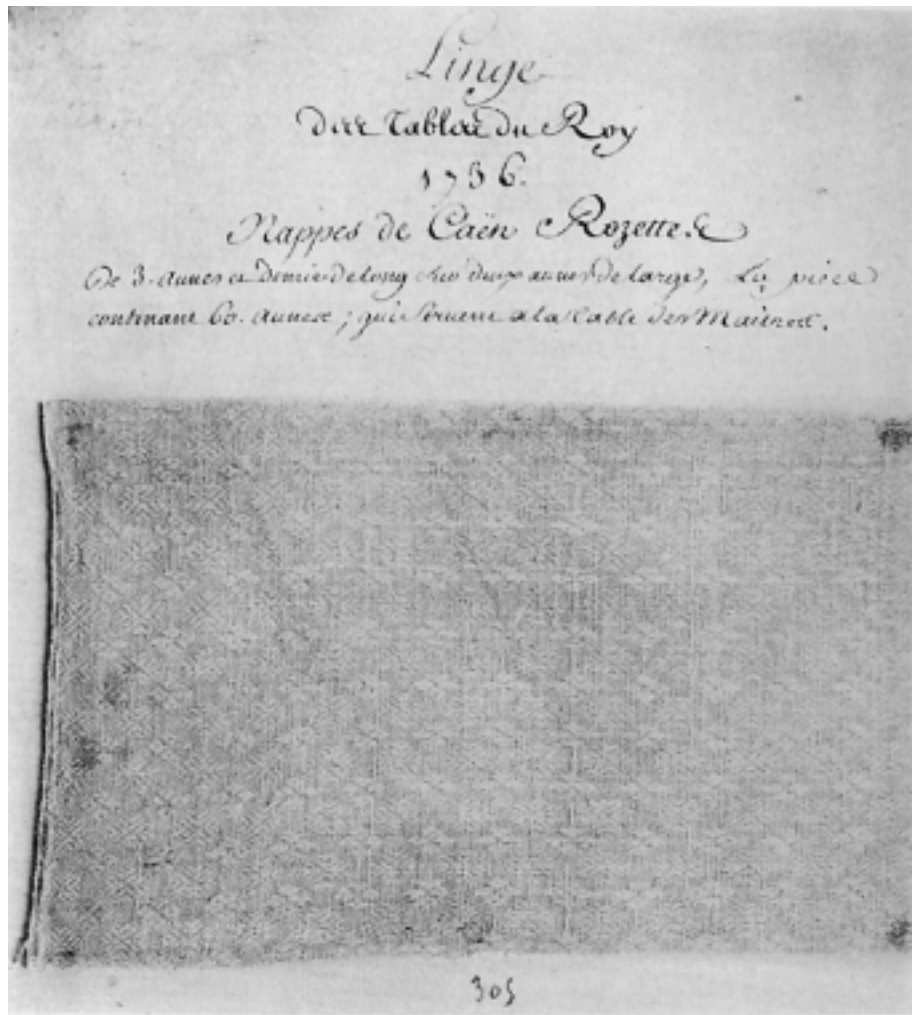 Linge
des Tables du Roy
1736.
Nappes de Caën Rozette.
De 3. aunes et demie de long sur deux aunes de large, La piece
contenant 60. aunes; qui servent a la table des Maitres.
305